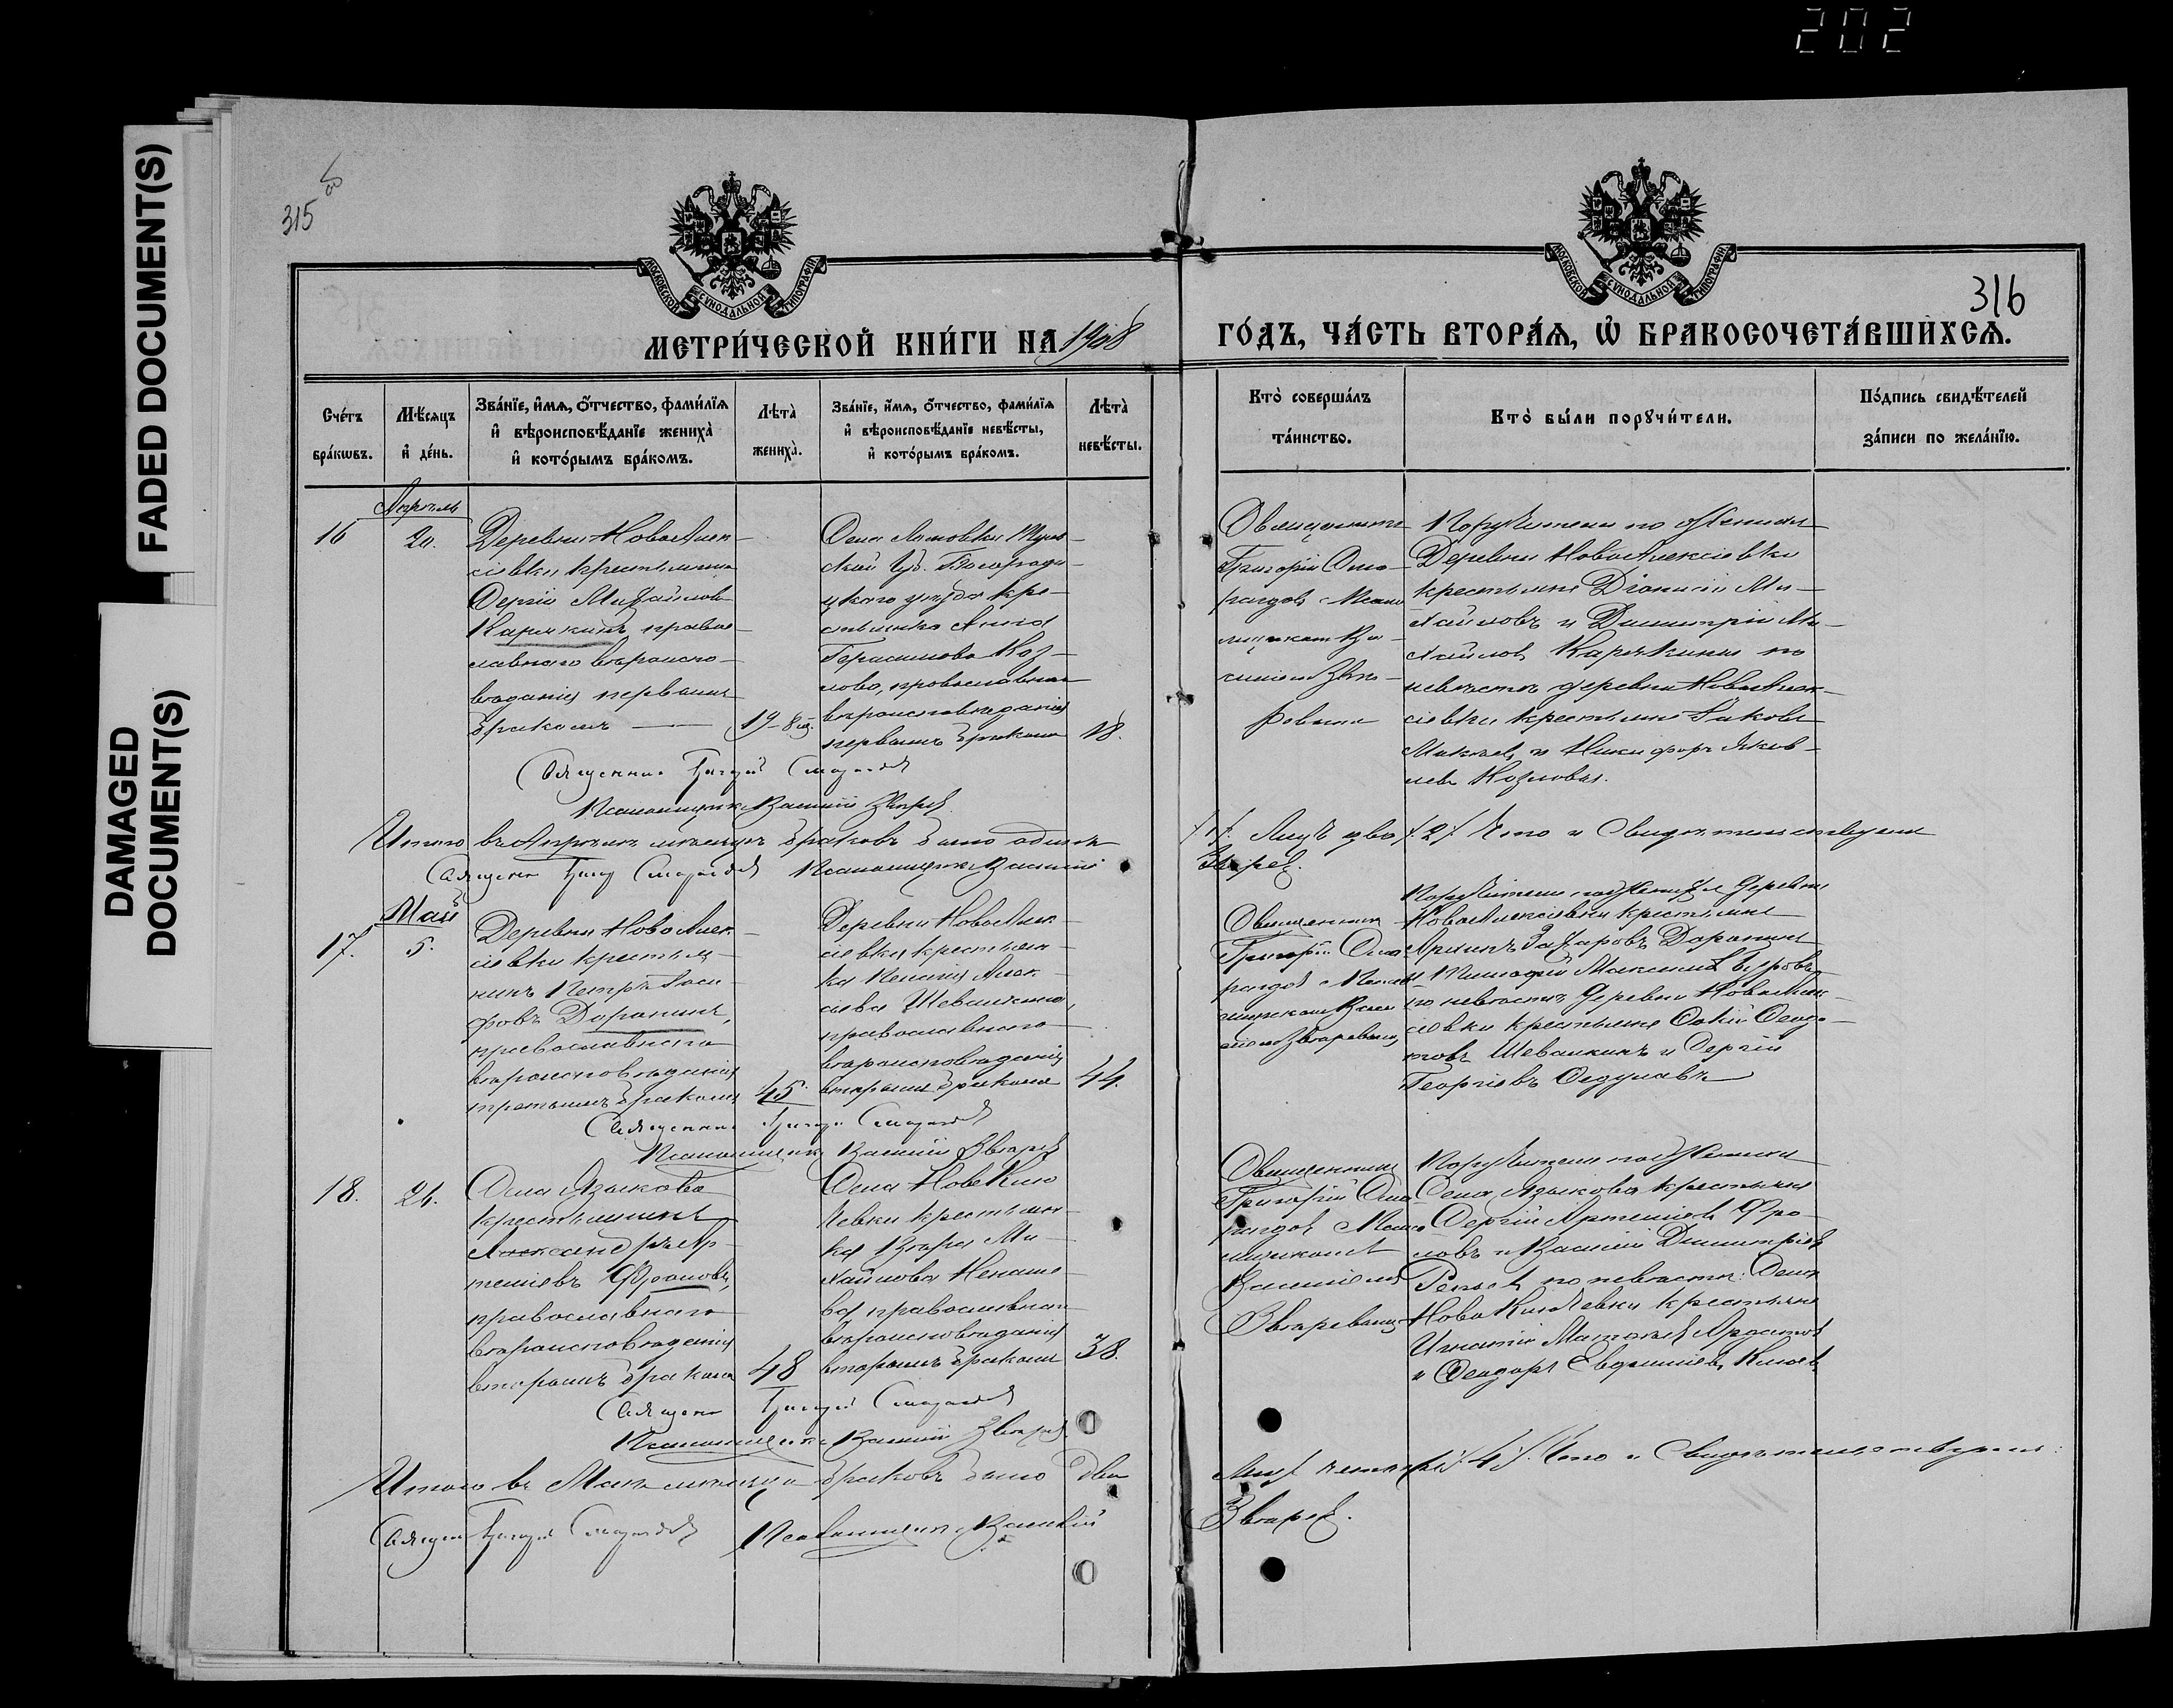 202
FADED DOCUMENT(S)
DAMAGED
DOCUMENT(S)
315 об
316
МОСКОВСКОЙ СѴНОДАЛЬНОЙ ТИПОГРАФІИ
МОСКОВСКОЙ СѴНОДАЛЬНОЙ ТИПОГРАФІИ
МЕТРИ́ЧЕСКОЙ КНИ́ГИ НА 1908
ГО́ДЪ, ЧА́СТЬ ВТОРА́Ѧ, Ѡ҆ БРАКОСОЧЕТА́ВШИХСѦ.
Сче́тъ
бра́кѡвъ.
Мѣ́сѧцъ
и҆ де́нь.
Зва́нїе, и҆́мѧ, ѻ҆́тчество, фами́лїѧ
и҆ вѣроисповѣ́данїе жениха̀
и҆ кото́рымъ бра́комъ.
Лѣта̀
жениха̀.
Зва́нїе, и҆́мѧ, ѻ҆́тчество, фами́лїѧ
и҆ вѣроисповѣ́данїе невѣ́сты,
и҆ кото́рымъ бра́комъ.
Лѣта̀
невѣ́сты.
Кто̀ соверша́лъ
та́инство.
Кто̀ бы́ли порꙋчи́тели.
По́дпись свидѣ́телей
за́писи по жела́нїю.
Апрѣль
16
20.
Деревни НовоАлек-
сіевки крестьянинъ
Сергій Михайловъ
Карякинъ, право-
славнаго вѣроиспо-
вѣданія первымъ
бракомъ
19
Села
ской Губ. Богороди-
цкаго уѣзда кре-
стьянка Анна
Герасимова Коз-
лова, православнаго
вѣроисповѣданія
первымъ бракомъ
18.
Священникъ
Григорій Сма-
рагдовъ Псало-
мщикомъ Ва-
силіемъ Звѣ-
ревымъ
Поручители по женихѣ
Деревни НовоАлексіевки
крестьяне Діонисій Ми-
хайловъ и Димитрій Ми-
хайловъ Карякины по
невѣстѣ деревни НовоАлек-
сіевки крестьяне Іаковъ
и Никифоръ Яков-
левъ Козловы.
Священникъ Григорій Смарагдовъ
Псаломщикъ Василій Звѣревъ
Итого въ Апрѣлѣ мѣсяцѣ браковъ было одинъ
/1/. Лицъ два /2/ Что и Свидѣтельствуемъ
Священникъ Григорій Смарагдовъ Псаломщикъ Василій
Звѣревъ.
Май
17.
5.
Деревни НовоАлек-
сіевки крестья-
нинъ Петръ Іоси-
фовъ Доронинъ,
православнаго
вѣроисповѣданія
третьимъ бракомъ
45.
Деревни НовоАлек-
сіевки крестьян-
ка Алек-
сіева Шевалкина,
православнаго
вѣроисповѣданія
вторымъ бракомъ
44.
Священникъ
Григорій Сма-
рагдовъ Псало-
мщикомъ Васи-
ліемъ Звѣревымъ
Поручители по женихѣ Деревни
НовоАлексіевки крестьяне
Захаровъ Доронинъ
и Тимофей Максимовъ
по невѣстѣ Деревни НовоАлек-
сіевки крестьяне Ѳеодо-
товъ Шевалкинъ и Сергій
Георгіевъ
Священникъ Григорій Смарагдовъ
Псаломщикъ Василій Звѣревъ
18.
26.
Села Языкова
крестьянинъ
Александръ Ар-
теміевъ Фроловъ,
православнаго
вѣроисповѣданія
вторымъ бракомъ
48
Села Ново Клю
чевки крестьян-
ка Вѣра Ми-
хайлова
православнаго
вѣроисповѣданія
вторымъ бракомъ
38.
Священникъ
Григорій Сма-
рагдовъ Псало-
мщикомъ
Василіемъ
Звѣревымъ
Поручители по женихѣ
Села Языкова крестьяне
Сергій Артеміевъ Фро-
ловъ и Василій Димитріевъ
по невѣстѣ: Села
Ново Ключевки крестьяне
Игнатій
и Ѳеодоръ Евфиміевъ
Священникъ Григорій Смарагдовъ
Псаломщикъ Василій Звѣревъ
Итого въ Маѣ мѣсяцѣ браковъ было два
Лицъ четыре /4/. Что и Свидѣтельствуемъ:
Священникъ Григорій Смарагдовъ Псаломщикъ Василій
Звѣревъ.